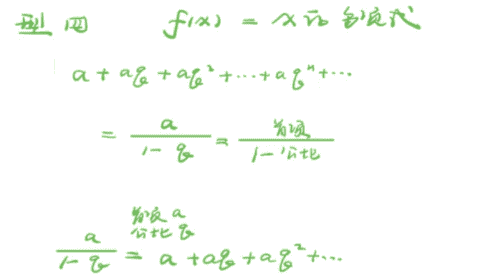 型四 f(x) = x的多项式
a + aq + aq² + ··· + aqⁿ + ···
= a/(1-q) = 首项/(1-公比)
首项 a
公比 q
a/(1-q) = a + aq + aq² + ···